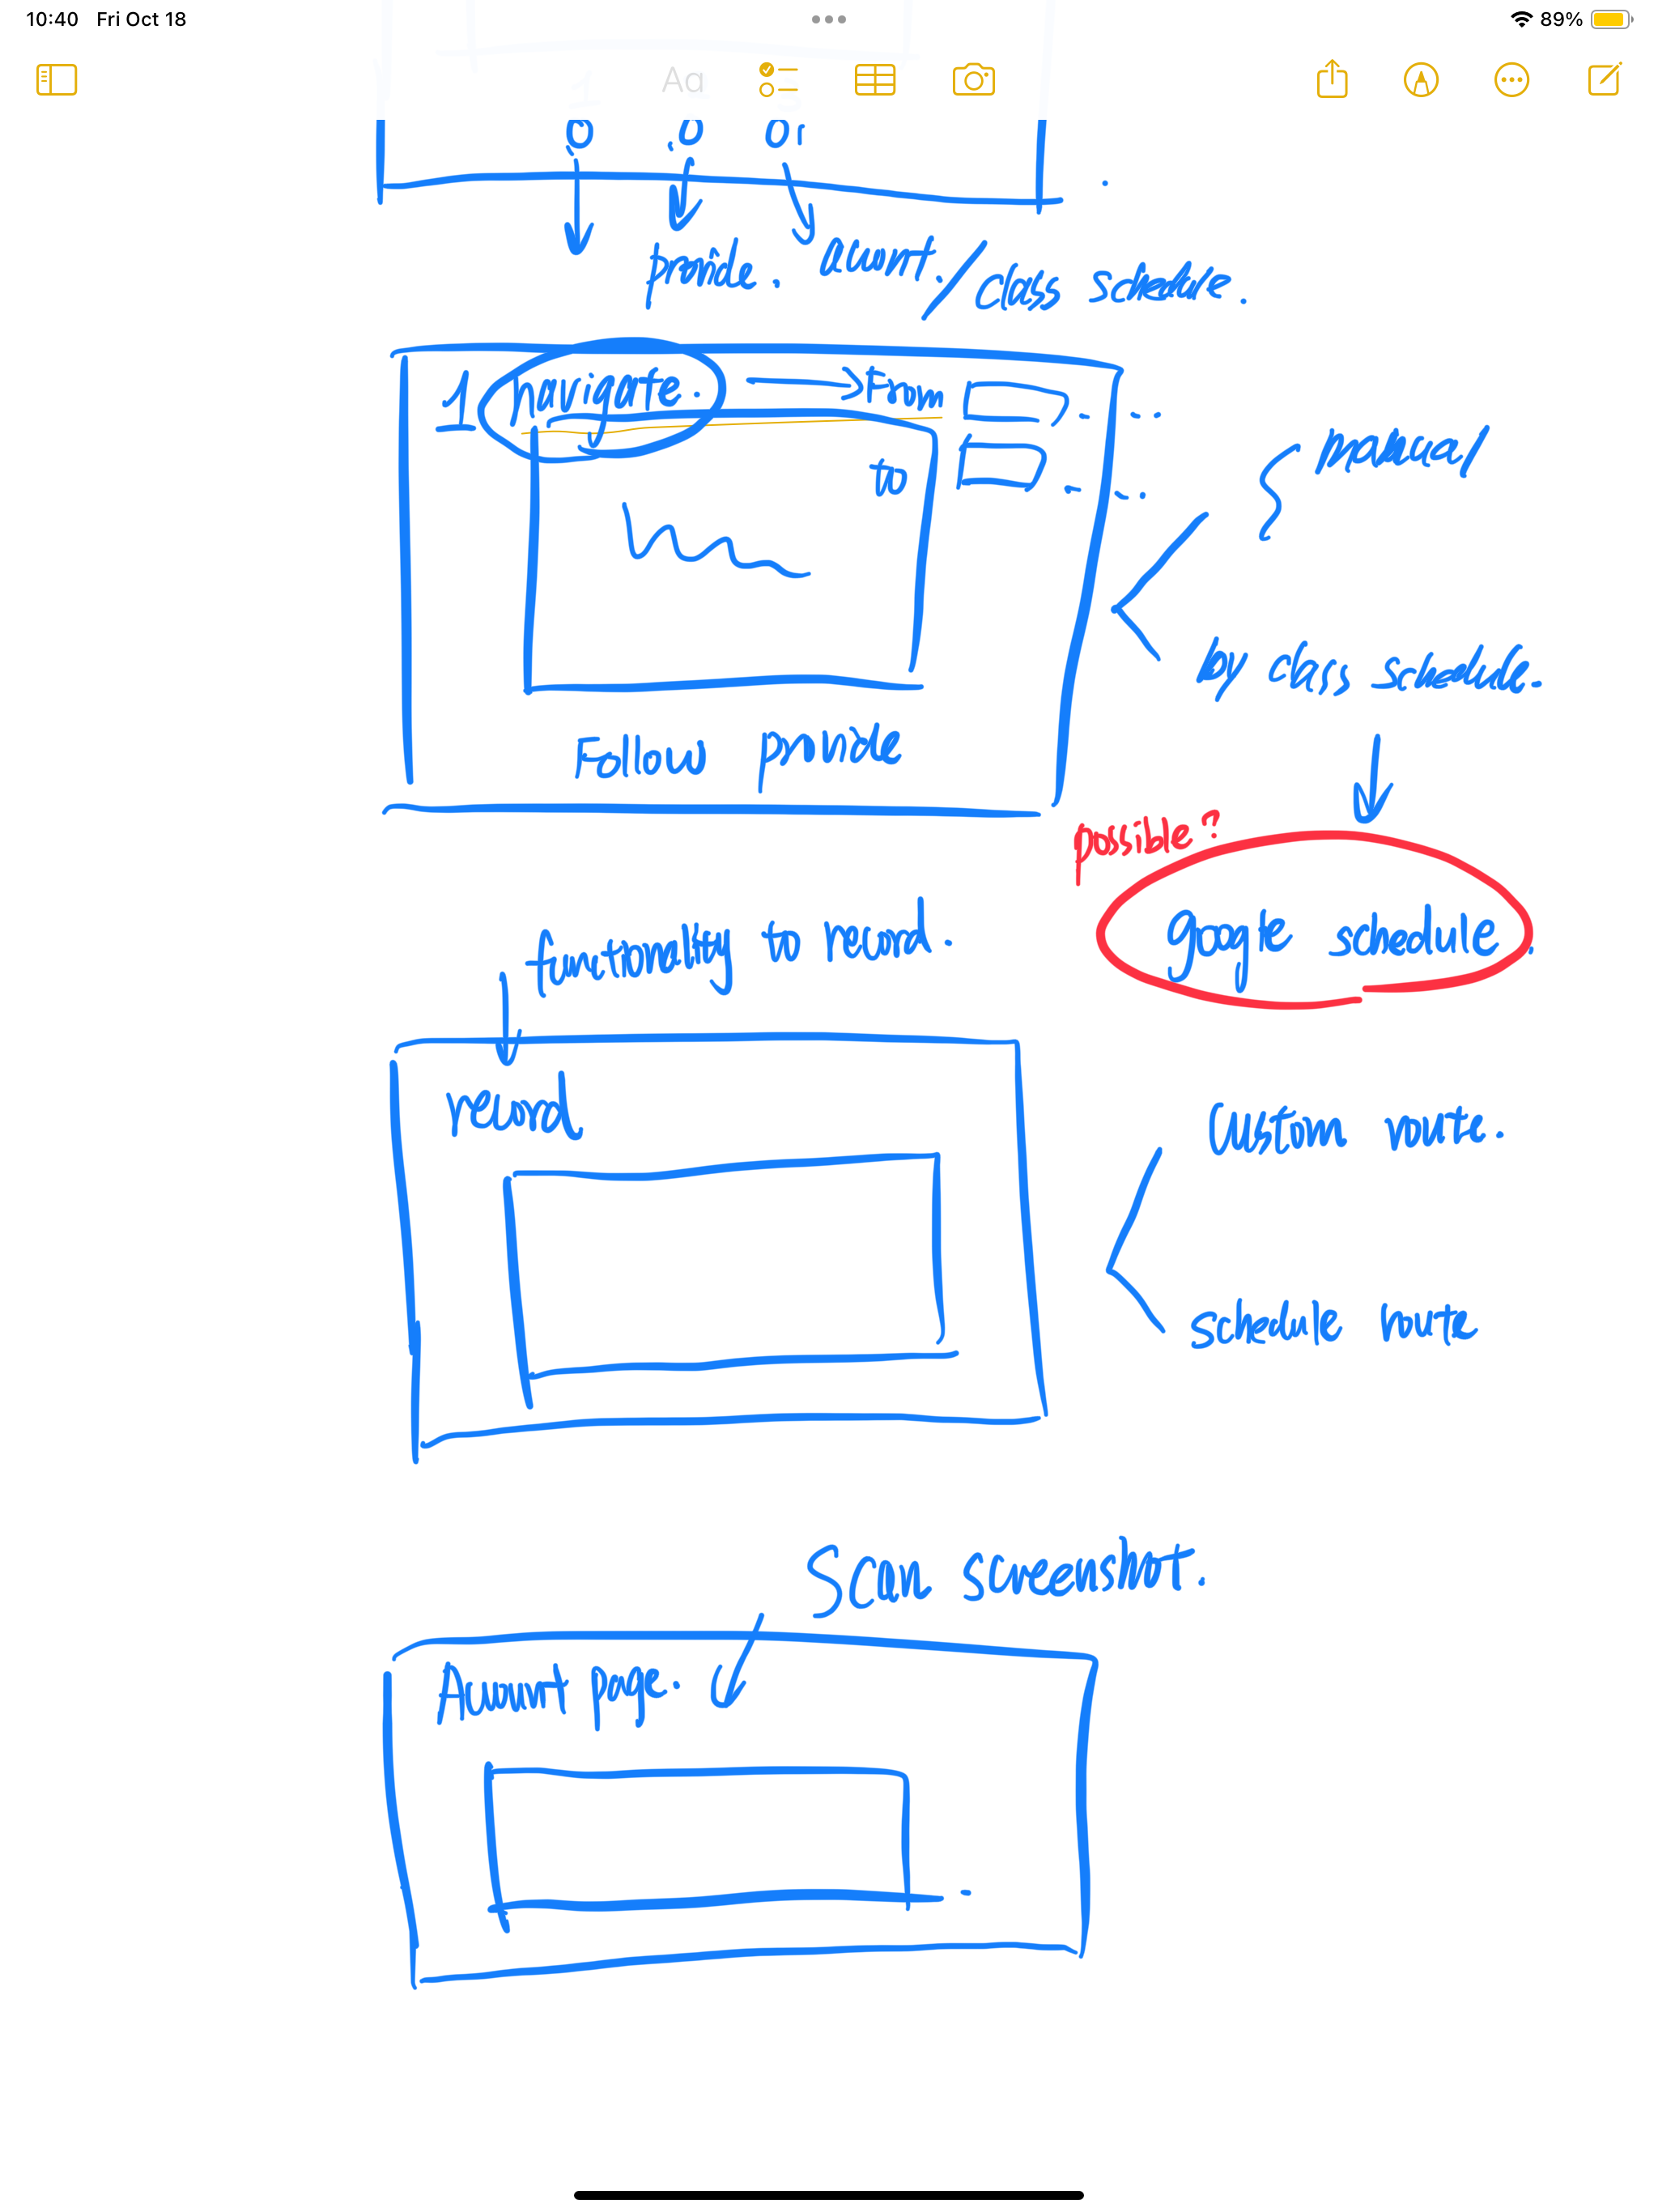 10:40 Fri Oct 18
89%
Aa
provide. account. / class schedule.
1 navigate. From
to
manual
by class schedule.
Follow provide
possible?
google schedule
functionality to record.
record
Custom route.
schedule route
Scan screenshot.
Account page.